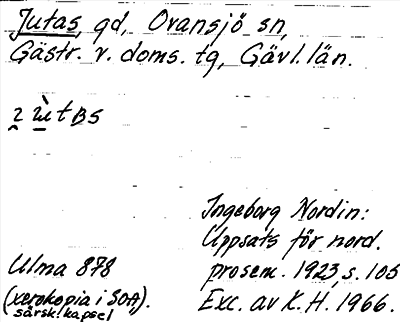 Jutas, gd, Ovansjö sn,
Gästr. v. doms. tg, Gävl. län.
Ingeborg Nordin:
Uppsats för nord.
prosem. 1923, s. 105
Exc. av K. H. 1966.
Ulma 878
(xerokopia i SOA).
särsk. kapsel